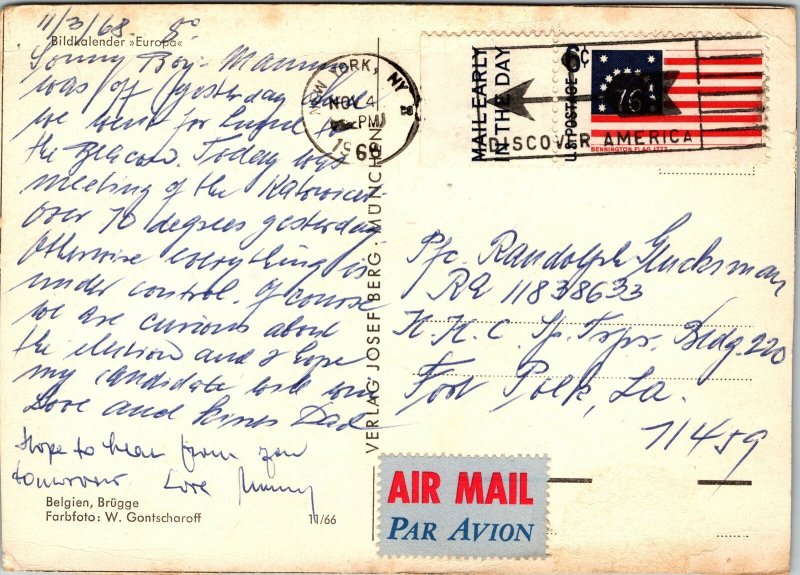 11/3/68. 8°
Bildkalender »Europa«
Sonny Boy - Mammy
was off yesterday and
we went for lunch to
the Beacon. Today was
meeting of the Katowicer
Over 70 degrees yesterday.
Otherwise everything is
under control. Of course
we are curious about
the election and I hope
my candidate will win
Love and kisses Dad
Hope to hear from you
tomorrow Love Mummy
Belgien, Brügge
Farbfoto: W. Gontscharoff
11/66
VERLAG JOSEF BERG · MÜNCHEN
NEW YORK, NY
NOV 4
PM
1968
MAIL EARLY
IN THE DAY
DISCOVER AMERICA
6¢
U.S. POSTAGE
76
BENNINGTON FLAG 1777
Pfc. Randolph Glucksman
RA 11838633
H.H.C. Sp. Trps. Bldg. 220
Fort Polk, La.
71459
AIR MAIL
PAR AVION